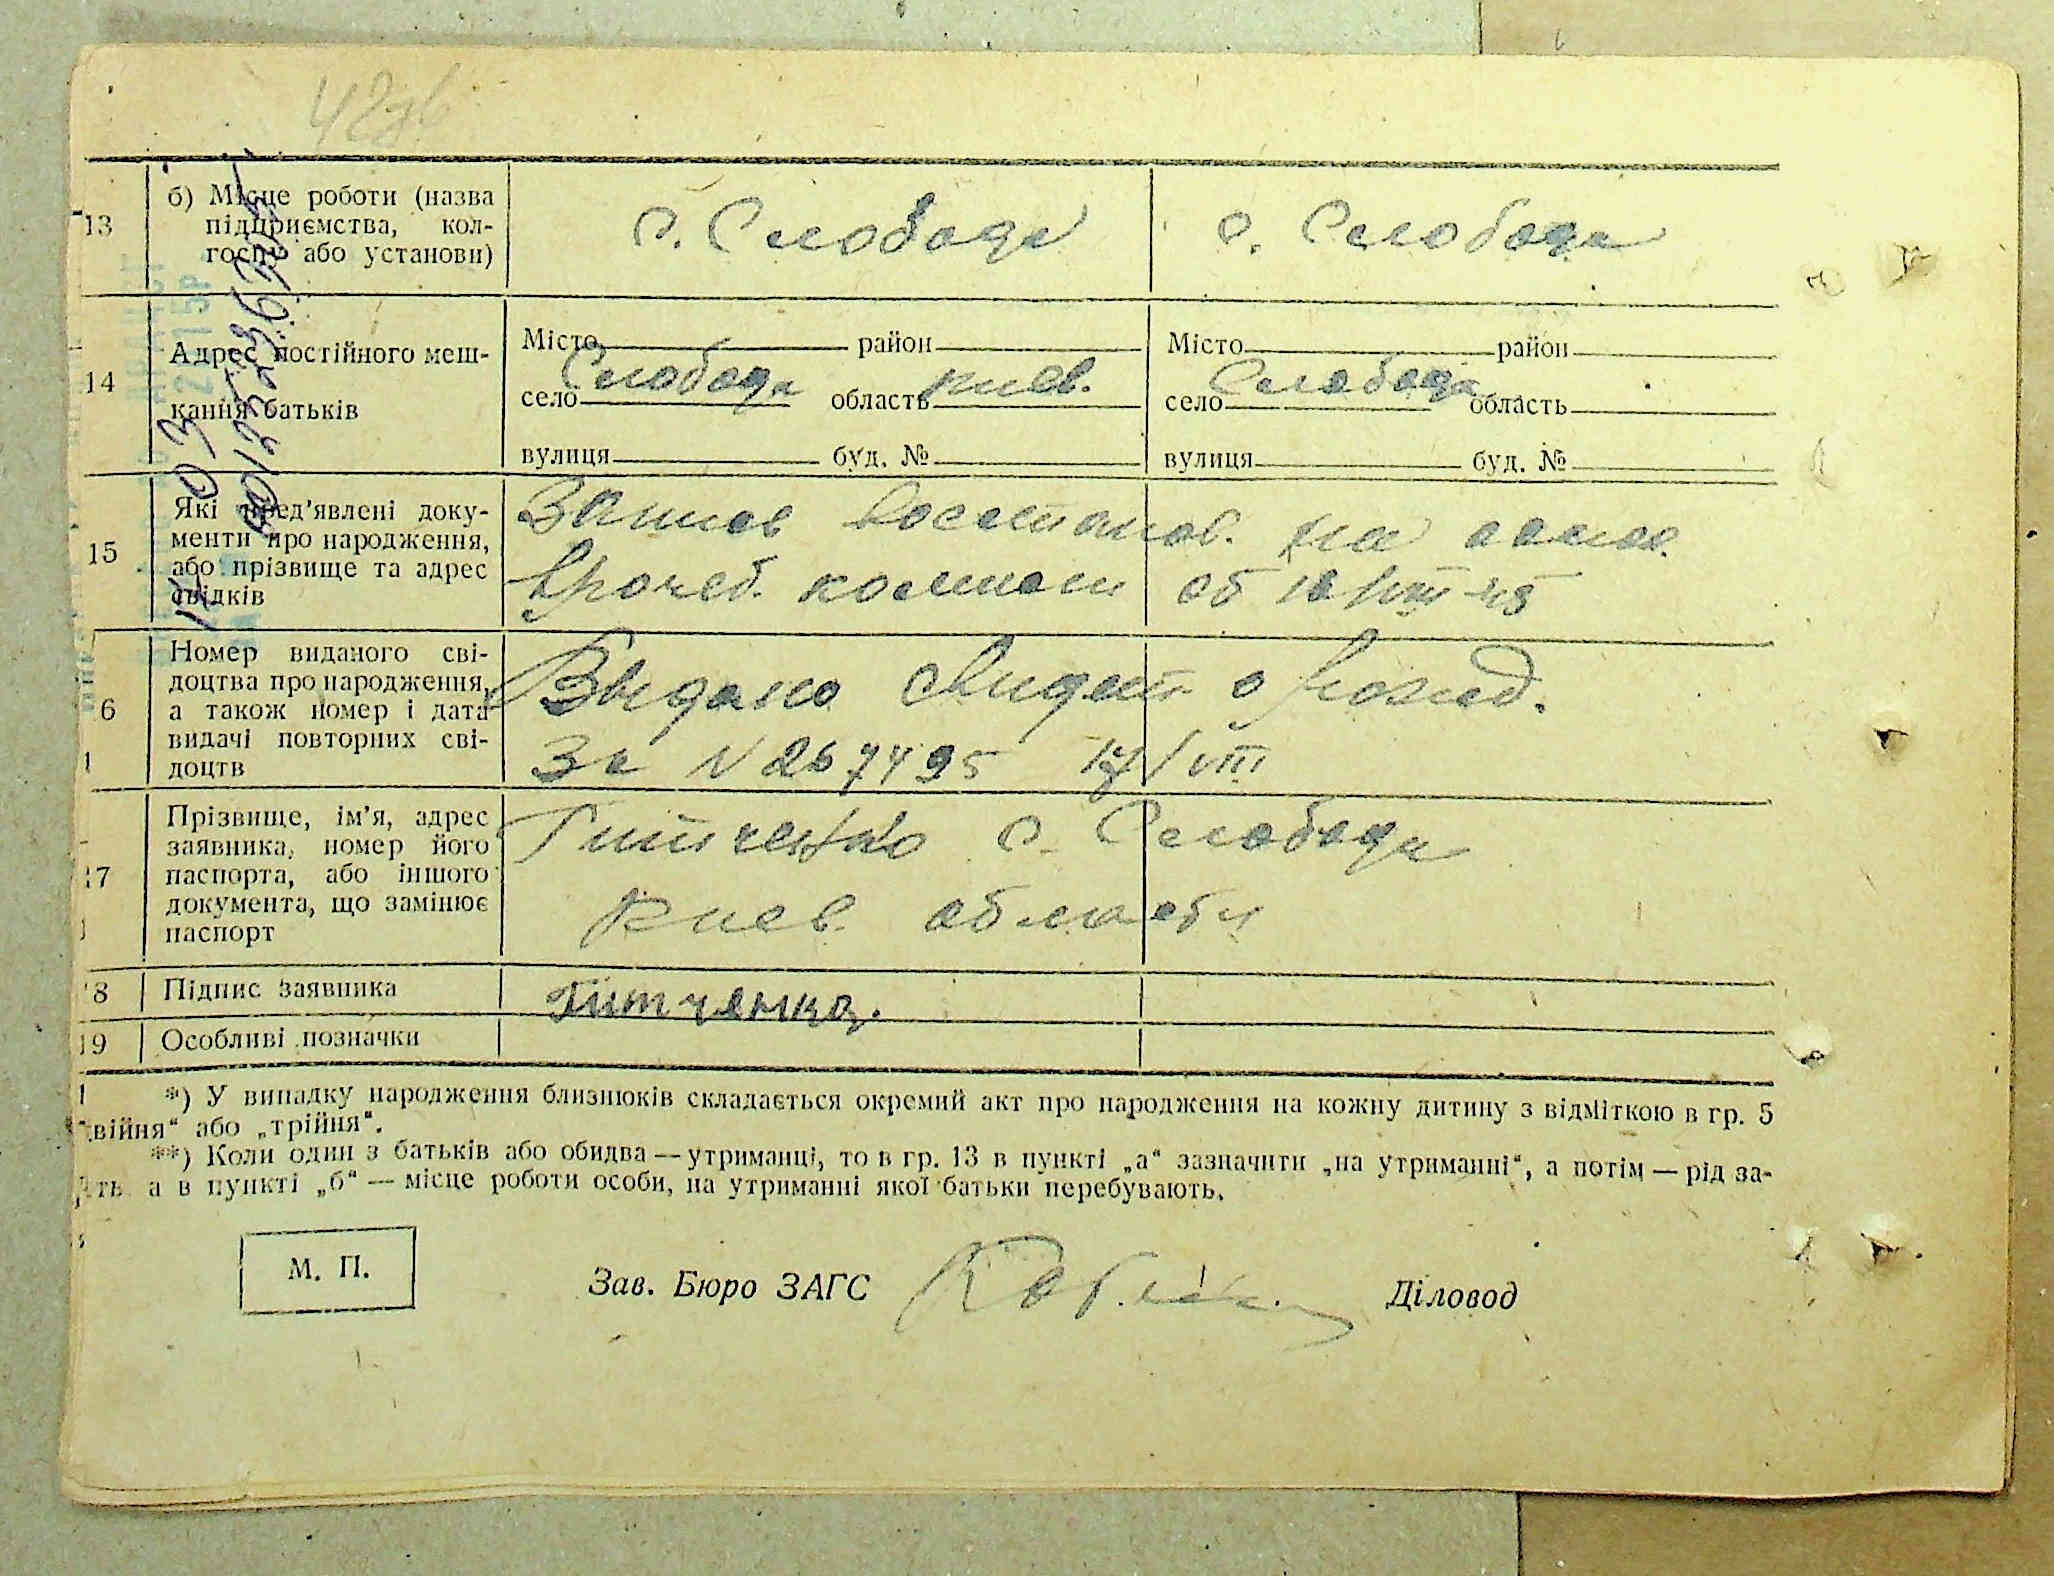 42зв
13 б) Місце роботи (назва
підприємства, кол-
госпу або установи)
с. Слобода с. Слобода
14 Адрес постійного меш-
кання батьків
Місто район Місто район
село Слобода область киев. село Слобода область
вулиця буд. № вулиця буд. №
15 Які пред'явлені доку-
менти про народження,
або прізвище та адрес
свідків
Запись восстанов. на основ.
врачеб. комисии от 18/VIII-45
6 Номер виданого сві-
доцтва про народження,
а також номер і дата
видачі повторних сві-
доцтв
Выдано свидет. о рожд.
За N 267495 17/VIII
17 Прізвище, ім'я, адрес
заявника, номер його
паспорта, або іншого
документа, що замінює
паспорт
Гитченко с. Слобода
киев. области
18 Підпис заявника Гитченко.
19 Особливі позначки
*) У випадку народження близнюків складається окремий акт про народження на кожну дитину з відміткою в гр. 5
двійня“ або „трійня“.
**) Коли один з батьків або обидва — утриманці, то в гр. 13 в пункті „а“ зазначити „на утриманні“, а потім — рід за-
ять а в пункті „б“ — місце роботи особи, на утриманні якої батьки перебувають.
М. П. Зав. Бюро ЗАГС Діловод